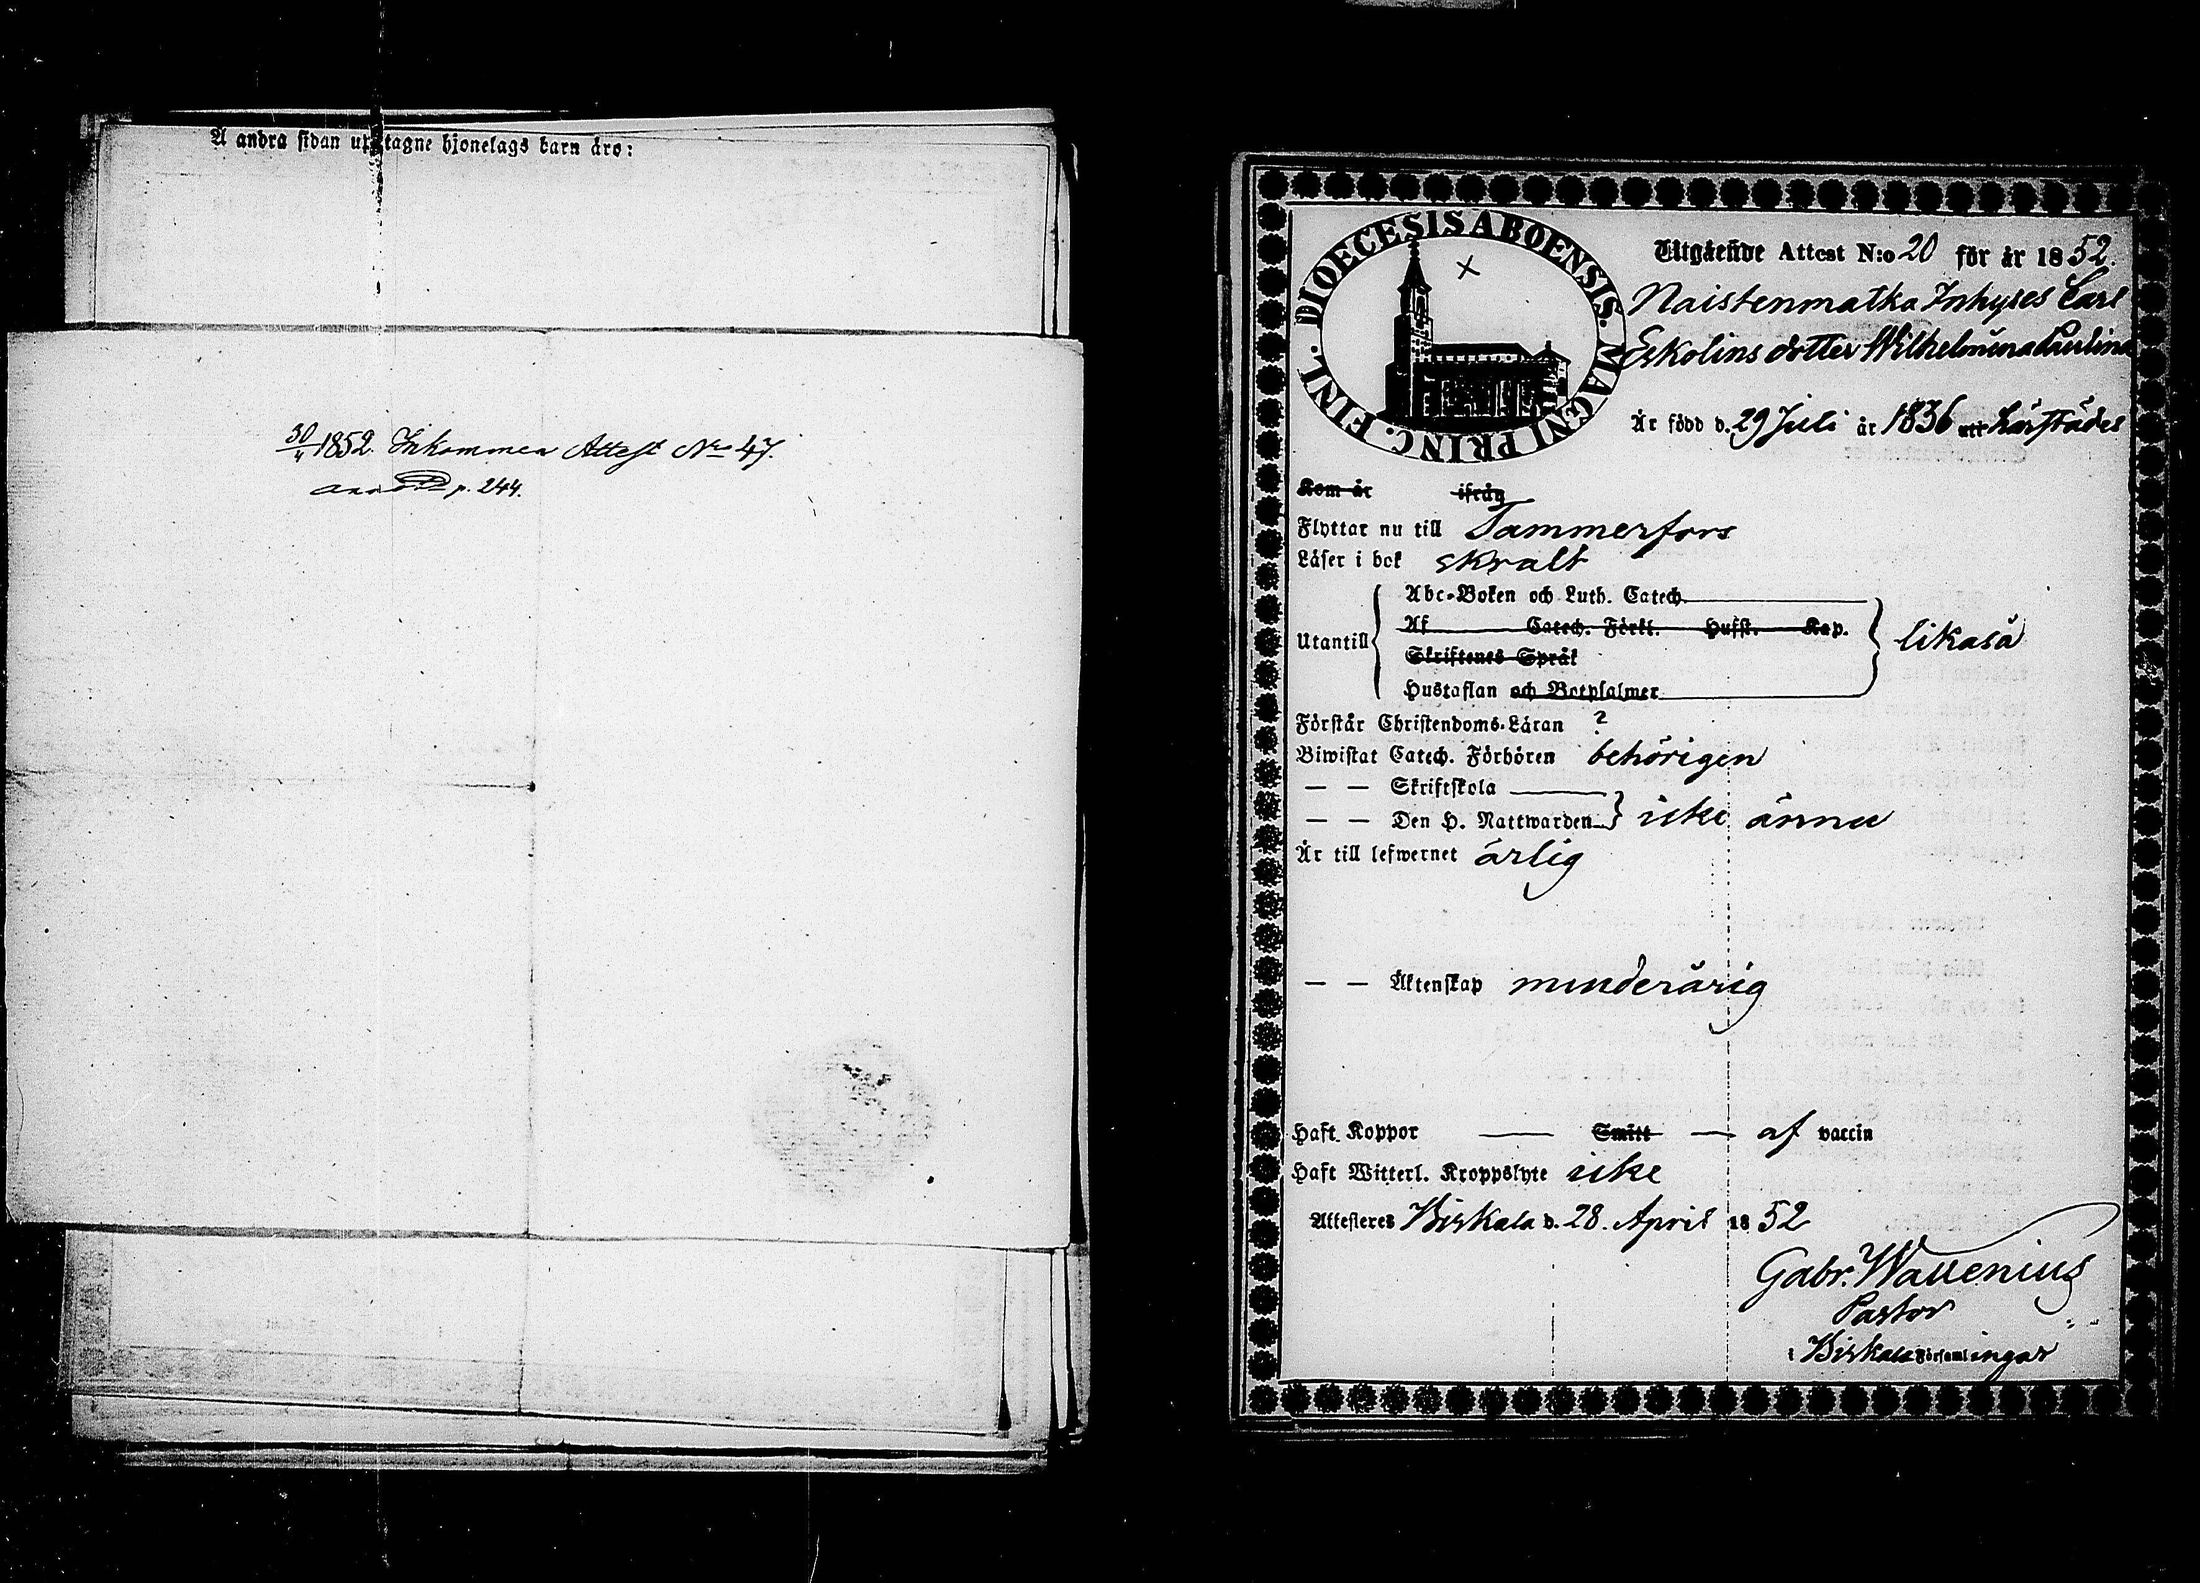 Å andra sidan upptagne hjonelags barn äro:
30/4 1852. Inkommen Attest Nro 47.
p. 244.
DIOECESIS ABOENSIS. MAGNI PRINC. FINL.
Utgående Attest N:o 20 för år 1852.
Naistenmatka Inhyses Carl
Eskolins dotter Wilhelmina Paulina
Är född d. 29 Juli år 1836 uti härstädes
Kom år ifrån
Flyttar nu till Tammerfors
Läser i bok skralt
Utantill
Abc-Boken och Luth. Catech.
Af Catech. Förkl. Hufst. Kap.
Skriftenes Språk
Hustaflan och Botpsalmer
likaså
Förstår Christendoms-Läran ?
Biwistat Catech. Förhören behörigen
— — Skriftskola
— — Den H. Nattwarden icke ännu
Är till lefwernet ärlig
— — Äktenskap minderårig
Haft Koppor — Smitt — af vaccin
Haft Witterl. Kroppslyte icke
Attesteres Birkala d. 28. April 1852
Gabr. Wallenius
Pastor
i Birkala Församlingar